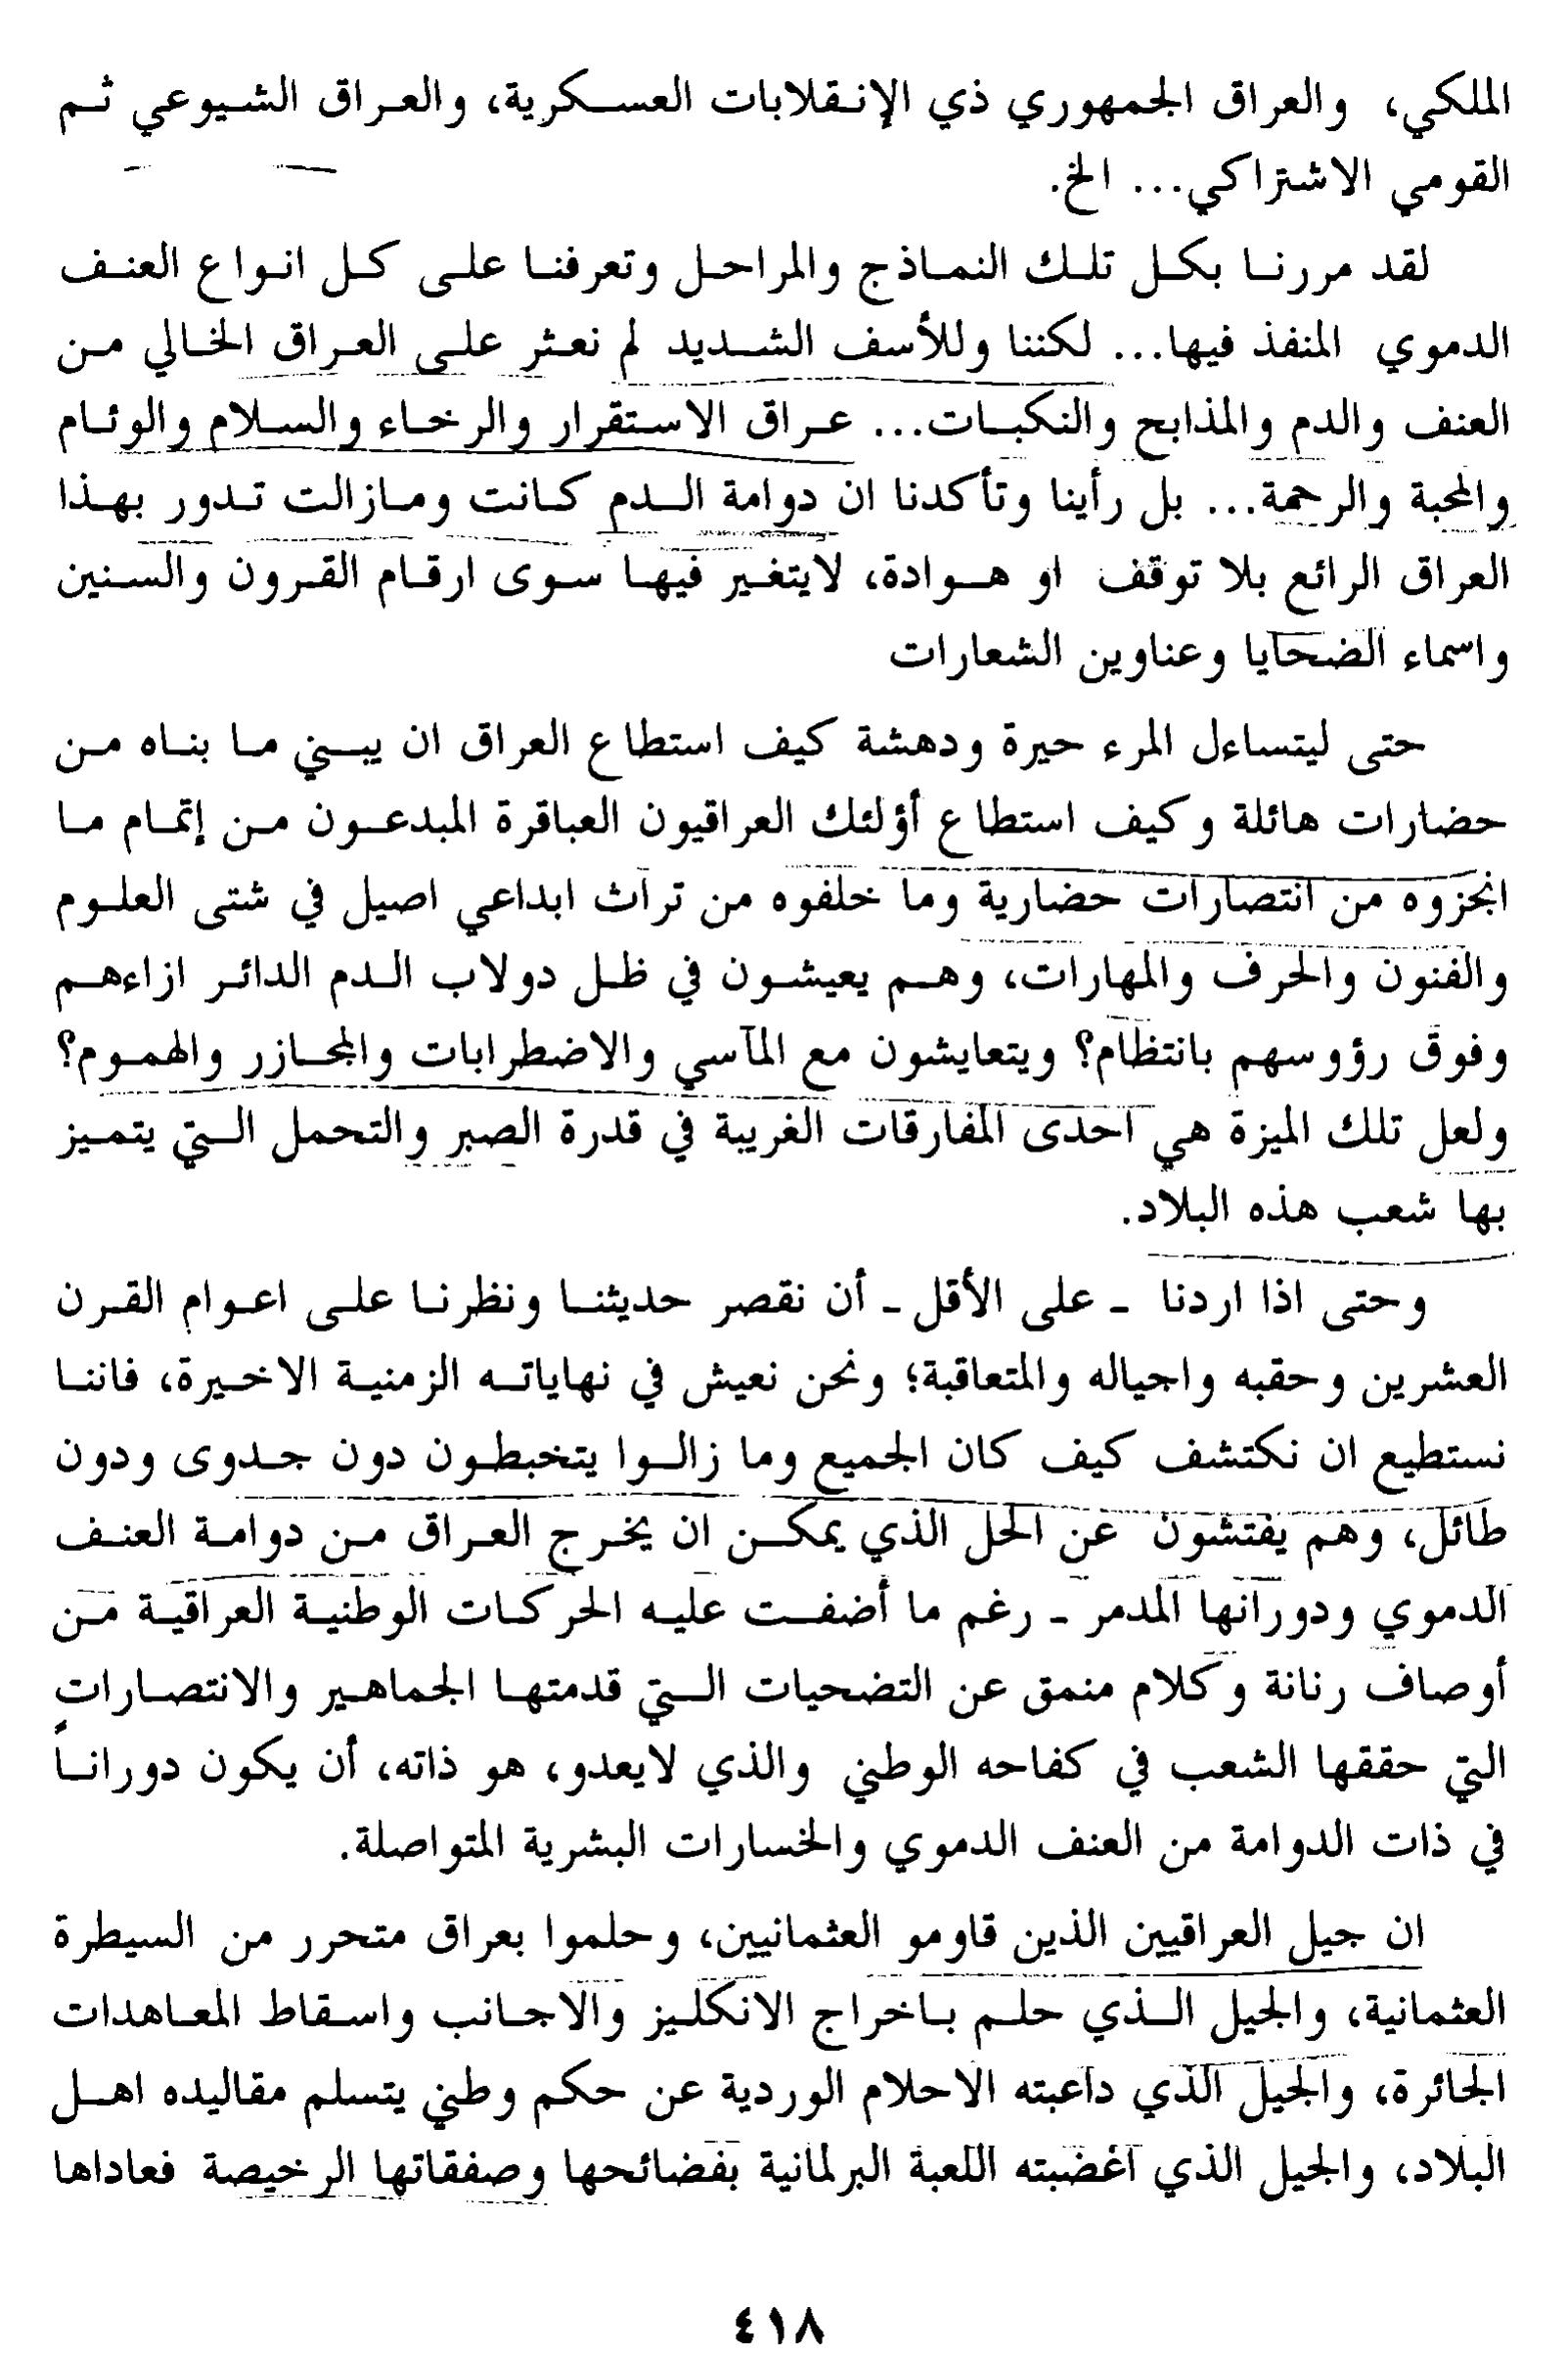 الملكي، والعراق الجمهوري ذي الإنقلابات العسكرية، والعراق الشيوعي ثم
القومي الاشتراكي... الخ.
لقد مررنا بكل تلك النماذج والمراحل وتعرفنا على كل انواع العنف
الدموي المنفذ فيها... لكننا وللأسف الشديد لم نعثر على العراق الخالي من
العنف والدم والمذابح والنكبات... عراق الاستقرار والرخاء والسلام والوئام
والمحبة والرحمة... بل رأينا وتأكدنا ان دوامة الدم كانت ومازالت تدور بهذا
العراق الرائع بلا توقف او هوادة، لايتغير فيها سوى ارقام القرون والسنين
واسماء الضحايا وعناوين الشعارات
حتى ليتساءل المرء حيرة ودهشة كيف استطاع العراق ان يبني ما بناه من
حضارات هائلة وكيف استطاع أؤلئك العراقيون العباقرة المبدعون من إتمام ما
انجزوه من انتصارات حضارية وما خلفوه من تراث ابداعي اصيل في شتى العلوم
والفنون والحرف والمهارات، وهم يعيشون في ظل دولاب الدم الدائر ازاءهم
وفوق رؤوسهم بانتظام؟ ويتعايشون مع المآسي والاضطرابات والمجازر والهموم؟
ولعل تلك الميزة هي احدى المفارقات الغريبة في قدرة الصبر والتحمل التي يتميز
بها شعب هذه البلاد.
وحتى اذا اردنا - على الأقل - أن نقصر حديثنا ونظرنا على اعوام القرن
العشرين وحقبه واجياله والمتعاقبة؛ ونحن نعيش في نهاياته الزمنية الاخيرة، فاننا
نستطيع ان نكتشف كيف كان الجميع وما زالوا يتخبطون دون جدوى ودون
طائل، وهم يفتشون عن الحل الذي يمكن ان يخرج العراق من دوامة العنف
الدموي ودورانها المدمر - رغم ما أضفت عليه الحركات الوطنية العراقية من
أوصاف رنانة وكلام منمق عن التضحيات التي قدمتها الجماهير والانتصارات
التي حققها الشعب في كفاحه الوطني والذي لايعدو، هو ذاته، أن يكون دوراناً
في ذات الدوامة من العنف الدموي والخسارات البشرية المتواصلة.
ان جيل العراقيين الذين قاومو العثمانيين، وحلموا بعراق متحرر من السيطرة
العثمانية، والجيل الذي حلم باخراج الانكليز والاجانب واسقاط المعاهدات
الجائرة، والجيل الذي داعبته الاحلام الوردية عن حكم وطني يتسلم مقاليده اهل
البلاد، والجيل الذي اغضبته اللعبة البرلمانية بفضائحها وصفقاتها الرخيصة فعاداها
٤١٨